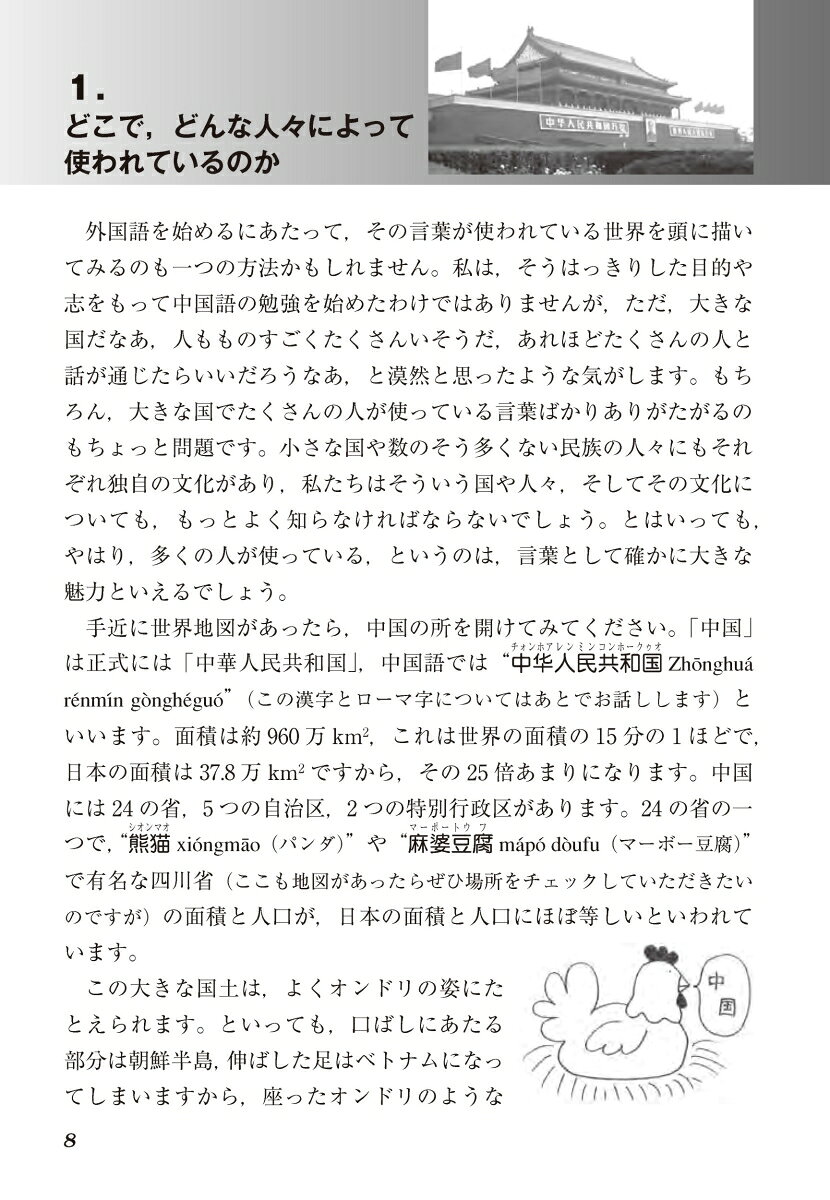 1.
どこで，どんな人々によって
使われているのか
中华人民共和国万岁
外国語を始めるにあたって，その言葉が使われている世界を頭に描い
てみるのも一つの方法かもしれません。私は，そうはっきりした目的や
志をもって中国語の勉強を始めたわけではありませんが，ただ，大きな
国だなあ，人もものすごくたくさんいそうだ，あれほどたくさんの人と
話が通じたらいいだろうなあ，と漠然と思ったような気がします。もち
ろん，大きな国でたくさんの人が使っている言葉ばかりありがたがるの
もちょっと問題です。小さな国や数のそう多くない民族の人々にもそれ
ぞれ独自の文化があり，私たちはそういう国や人々，そしてその文化に
ついても，もっとよく知らなければならないでしょう。とはいっても，
やはり，多くの人が使っている，というのは，言葉として確かに大きな
魅力といえるでしょう。
手近に世界地図があったら，中国の所を開けてみてください。「中国」
チォンホアレンミンコンホークゥオ
は正式には「中華人民共和国」，中国語では“中华人民共和国 Zhōnghuá
rénmín gònghéguó”（この漢字とローマ字についてはあとでお話しします）と
いいます。面積は約 960 万 km²，これは世界の面積の 15 分の 1 ほどで，
日本の面積は 37.8 万 km² ですから，その 25 倍あまりになります。中国
には 24 の省，5 つの自治区，2 つの特別行政区があります。24 の省の一
シオンマオ マーポートウフ
つで，“熊猫 xióngmāo（パンダ）”や“麻婆豆腐 mápó dòufu（マーボー豆腐）”
で有名な四川省（ここも地図があったらぜひ場所をチェックしていただきたい
のですが）の面積と人口が，日本の面積と人口にほぼ等しいといわれて
います。
この大きな国土は，よくオンドリの姿にた
とえられます。といっても，口ばしにあたる
部分は朝鮮半島，伸ばした足はベトナムになっ
てしまいますから，座ったオンドリのような
中国
8